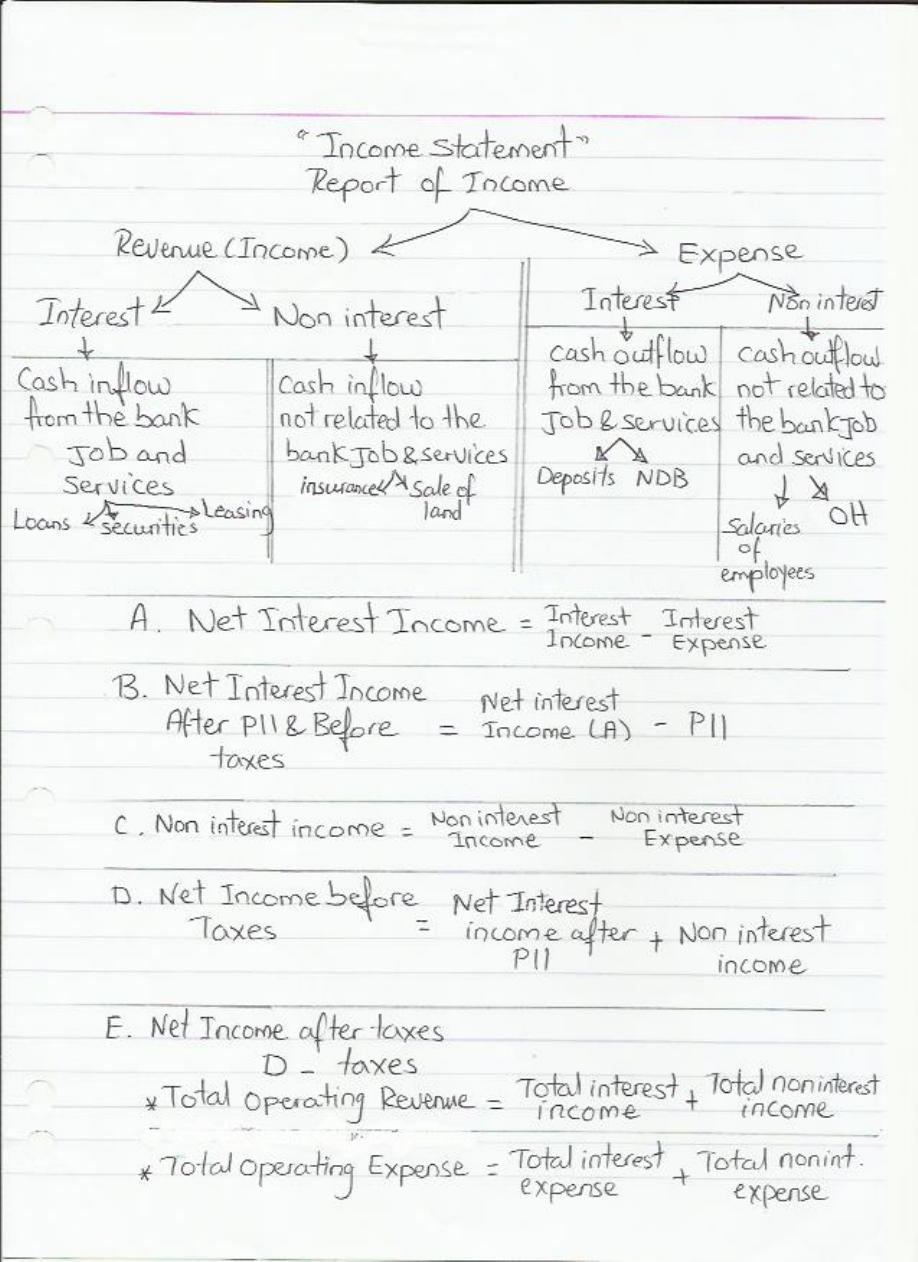 "Income Statement"
Report of Income
Revenue (Income)
Expense
Interest
Non interest
Interest
Non interest
Cash inflow
from the bank
Job and
Services
Loans
securities
Leasing
Cash inflow
not related to the
bank Job & services
insurance
Sale of
land
cash outflow
from the bank
Job & services
Deposits NDB
cash outflow
not related to
the bank Job
and services
Salaries
of
employees
OH
A. Net Interest Income = Interest Income - Interest Expense
B. Net Interest Income
After PII & Before = Net interest Income (A) - PII
taxes
C. Non interest income = Non interest Income - Non interest Expense
D. Net Income before
Taxes = Net Interest income after PII + Non interest income
E. Net Income after taxes
D - taxes
* Total Operating Revenue = Total interest income + Total noninterest income
* Total Operating Expense = Total interest expense + Total nonint. expense